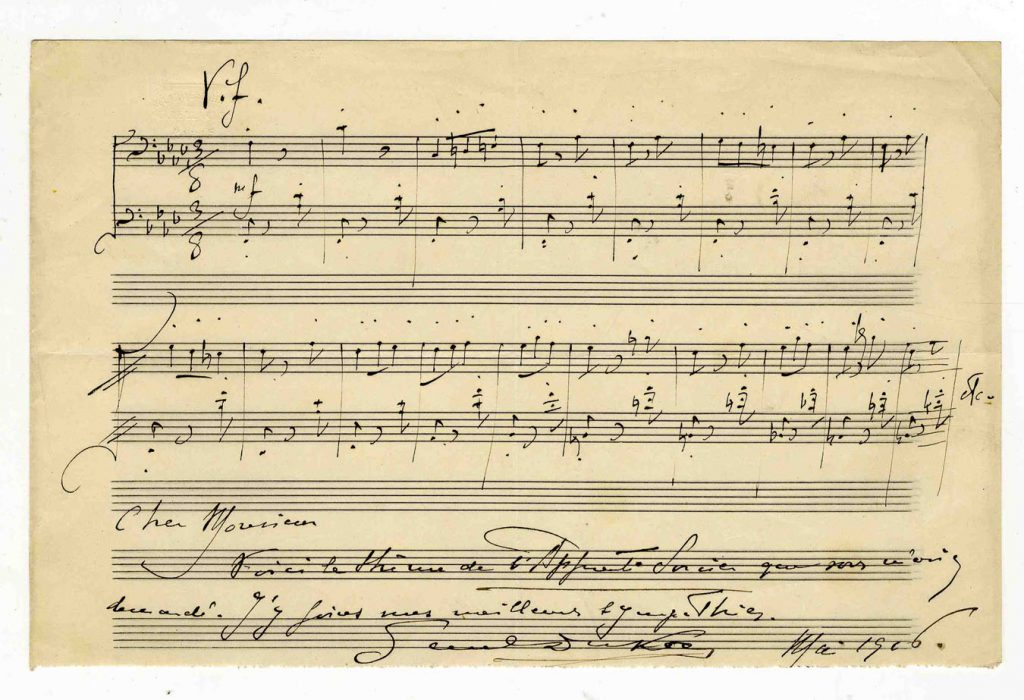 Vif.
3/8
mf
3/8
etc.
Cher Monsieur
Voici le thème de l'Apprenti Sorcier que vous m'avez
demandé. J'y joins mes meilleures sympathies.
Paul Dukas
Mai 1906.